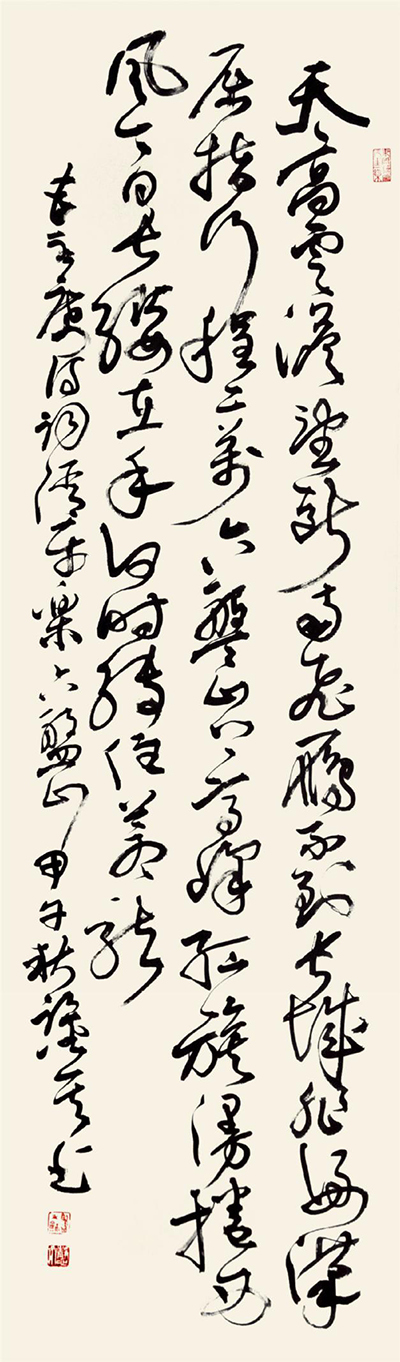 天高雲淡望斷南飛鴈不到長城非好漢
屈指行程二萬六盤山上高峰紅旗漫捲西
風今日長纓在手何時縛住蒼龍
毛主席詩詞清平樂六盤山甲午秋書